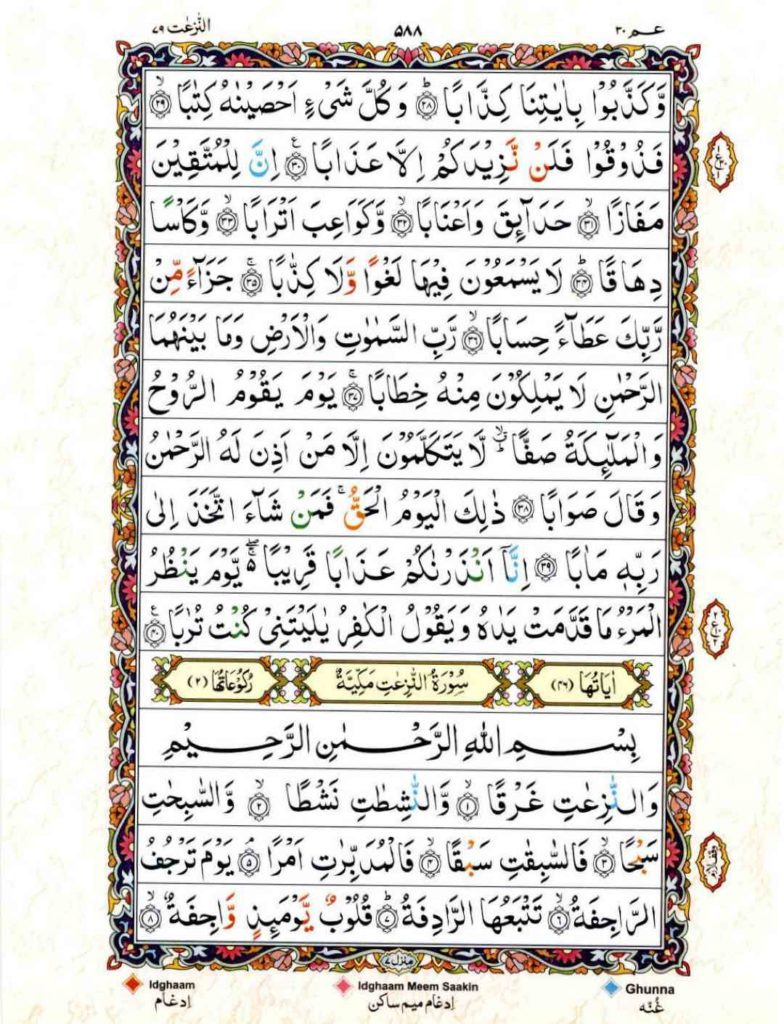 عـم ۳۰ ۵۸۸ النّٰزعٰت ۷۹
وَّكَذَّبُوْا بِاٰيٰتِنَا كِذَّابًا ؕ﴿۲۸﴾ وَكُلَّ شَیْءٍ اَحْصَيْنٰهُ كِتٰبًا ۙ﴿۲۹﴾
فَذُوْقُوْا فَلَنْ نَّزِيْدَكُمْ اِلَّا عَذَابًا ﴿۳۰﴾ ع اِنَّ لِلْمُتَّقِيْنَ
مَفَازًا ۙ﴿۳۱﴾ حَدَآئِقَ وَاَعْنَابًا ۙ﴿۳۲﴾ وَّكَوَاعِبَ اَتْرَابًا ۙ﴿۳۳﴾ وَّكَاْسًا
دِهَاقًا ؕ﴿۳۴﴾ لَا يَسْمَعُوْنَ فِيْهَا لَغْوًا وَّلَا كِذّٰبًا ۚ﴿۳۵﴾ جَزَآءً مِّنْ
رَّبِّكَ عَطَآءً حِسَابًا ۙ﴿۳۶﴾ رَّبِّ السَّمٰوٰتِ وَالْاَرْضِ وَمَا بَيْنَهُمَا
الرَّحْمٰنِ لَا يَمْلِكُوْنَ مِنْهُ خِطَابًا ۚ﴿۳۷﴾ يَوْمَ يَقُوْمُ الرُّوْحُ
وَالْمَلٰٓئِكَةُ صَفًّا ؕۙ لَّا يَتَكَلَّمُوْنَ اِلَّا مَنْ اَذِنَ لَهُ الرَّحْمٰنُ
وَقَالَ صَوَابًا ﴿۳۸﴾ ذٰلِكَ الْيَوْمُ الْحَقُّ ۚ فَمَنْ شَآءَ اتَّخَذَ اِلٰى
رَبِّهٖ مَاٰبًا ﴿۳۹﴾ اِنَّاۤ اَنْذَرْنٰكُمْ عَذَابًا قَرِيْبًا ۖۚ۬ يَّوْمَ يَنْظُرُ
الْمَرْءُ مَا قَدَّمَتْ يَدٰهُ وَيَقُوْلُ الْكٰفِرُ يٰلَيْتَنِیْ كُنْتُ تُرٰبًا ﴿۴۰﴾ ع
اٰيَاتُهَا (۴۶) سُوْرَةُ النّٰزِعٰتِ مَكِّيَّةٌ رُكُوْعَاتُهَا (۲)
بِسْمِ اللّٰهِ الرَّحْمٰنِ الرَّحِيْمِ
وَالنّٰزِعٰتِ غَرْقًا ۙ﴿۱﴾ وَّالنّٰشِطٰتِ نَشْطًا ۙ﴿۲﴾ وَّالسّٰبِحٰتِ
سَبْحًا ۙ﴿۳﴾ فَالسّٰبِقٰتِ سَبْقًا ۙ﴿۴﴾ فَالْمُدَبِّرٰتِ اَمْرًا ۘ﴿۵﴾ يَوْمَ تَرْجُفُ
الرَّاجِفَةُ ۙ﴿۶﴾ تَتْبَعُهَا الرَّادِفَةُ ؕ﴿۷﴾ قُلُوْبٌ يَّوْمَئِذٍ وَّاجِفَةٌ ۙ﴿۸﴾
منزل ۷
Ghunna Idghaam Meem Saakin Idghaam
غُنّه اِدغام میم ساکن اِدغَام